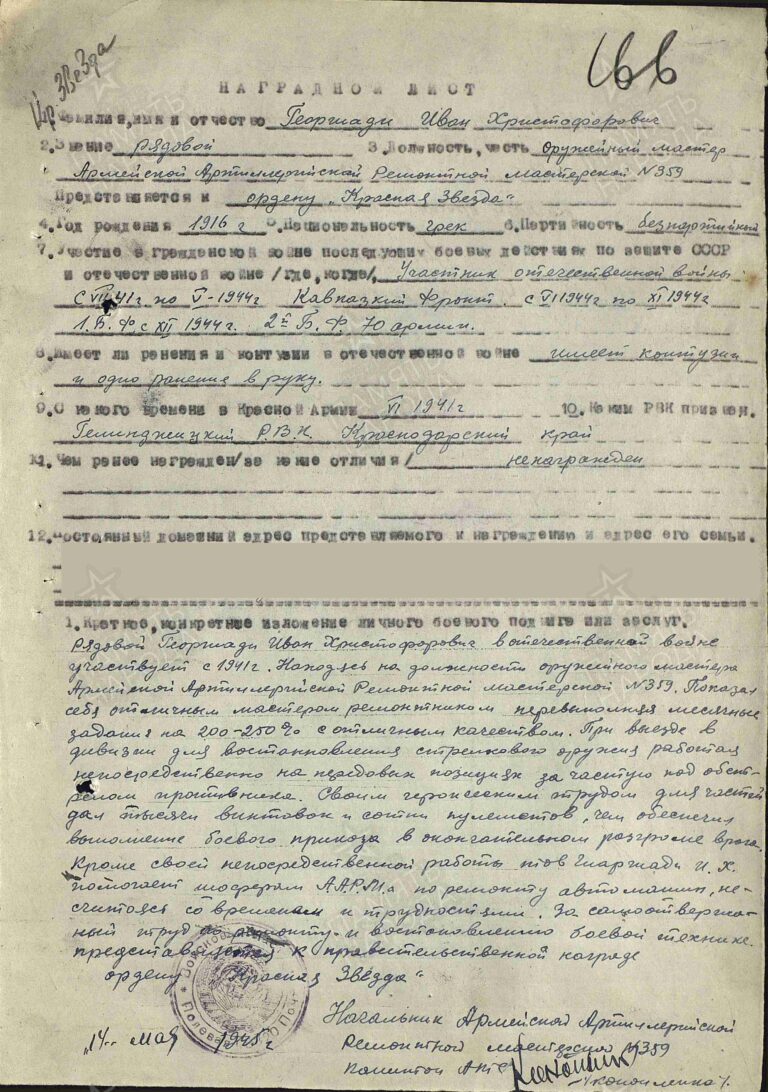 Кр Звезда
166
НАГРАДНОЙ ЛИСТ
Фамилия, имя и отчество Георгиади Иван Христофорович
2. Звание рядовой 3. Должность, часть оружейный мастер
Армейской Артиллерийской Ремонтной мастерской N359
Представляется к ордену „Красная Звезда"
4. Год рождения 1916 г 5. Национальность грек 6. Партийность безпартийный
7. Участие в гражданской войне последующих боевых действиях по защите СССР
и отечественной войне /где, когда/, Участник отечественной войны
с VII 41 г. по V-1944г Кавпазкий Фронт. с VI 1944г по XI 1944г
1.Б.Ф с XII 1944г. 2й Б.Ф. 70 армии.
8. Имеет ли ранения и контузии в отечественной войне имеет контузии
и одно ранения в руку.
9. С какого времени в Красной Армии VI 1941г 10. Каким РВК призван.
Гелинджицкий Р.В.К. Краснодарский край
11. Чем ранее награжден/за какие отличия/ ненагражден
12. Постоянный домашний адрес представляемого к награждению и адрес его семьи.
1. Краткое, конкретное изложение личного боевого подвига или заслуг.
Рядовой Георгиади Иван Христофорович в отечественной войне
участвует с 1941г. Находясь на должности оружейного мастера
Армейской Артиллерийской Ремонтной мастерской N359. Показал
себя отличным мастером ремонтником перевыполняя месячные
задания на 200-250% с отличным качеством. При выезде в
дивизии для востановления стрелкового оружия работал
непосредственно на передовых позициях за частую под обст-
релом противника. Своим героическим трудом для частей
дал тысячи винтовок и сотни пулеметов, чем обеспечил
выполнение боевого приказа в окончательном разгроме врага.
Кроме своей непосредственной работы тов Гиаргиади И.Х.
помогает шоферам А.А.Р.М.а по ремонту автомашин, не-
считаясь со временем и трудностями. За самоотвержен-
ный труд по ремонту и востановлению боевой технике.
представляется к правительственной награде
ордену „Красная Звезда"
Начальник Армейской Артиллерийской
„14" мая 1945г Ремонтной мастерской N359
Капитон
/Кононенко/